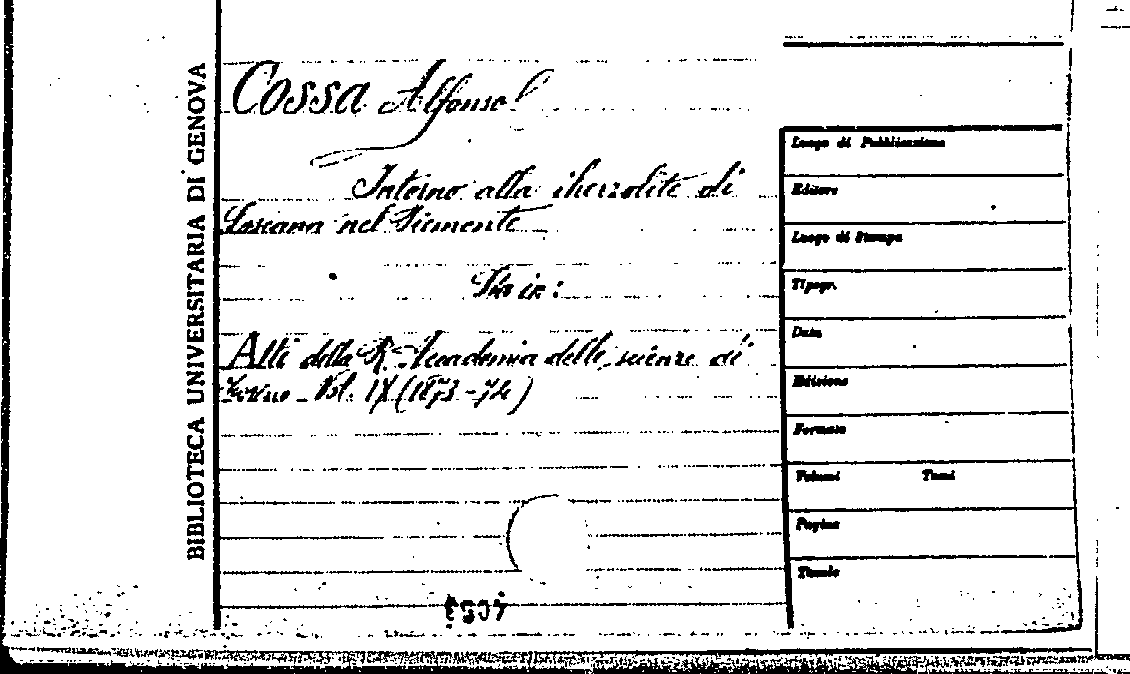 BIBLIOTECA UNIVERSITARIA DI GENOVA
Cossa Alfonso
Intorno alla iherzolite di
Locana nel Piemonte
Sta in:
Atti della R. Accademia delle scienze di
Torino - Vol. IX (1873-74)
Luogo di Pubblicazione
Editore
Luogo di Stampa
Tipogr.
Data
Edizione
Formato
Volumi Tomi
Pagine
Tavole